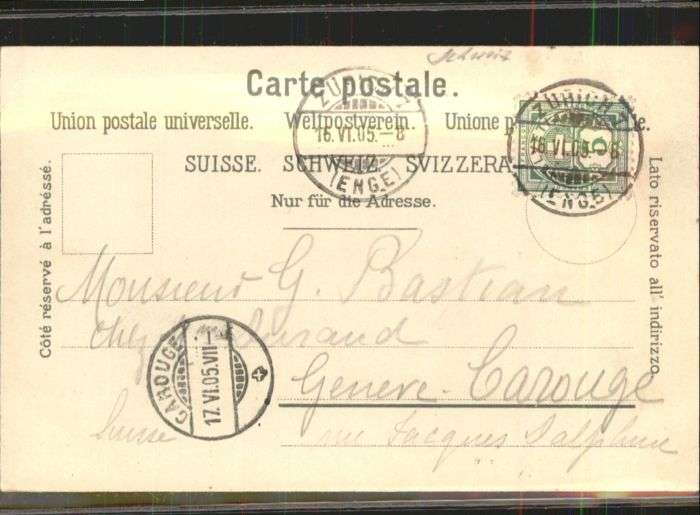 Schweiz
Carte postale.
Union postale universelle. Weltpostverein. Unione p e.
SUISSE. SCHWEIZ. SVIZZERA
Nur für die Adresse.
Côté réservé à l'adresse.
Lato riservato all' indirizzo.
ZÜRICH
16.VI.05.-8
(ENGE)
ZÜRICH
16.VI.05.-8
(ENGE)
5
Monsieur G. Bastian
chez Durand
Genève-Carouge
Suisse rue Jacques Dalphin
CAROUGE
17.VI.05.VII-